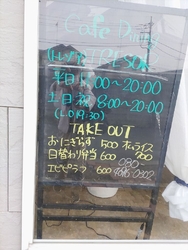 Cafe Dining
平日 8:00～20:00
土日祝 8:00～20:00
(L.O 19:30)
TAKE OUT
おにぎらず 500 オムライス
日替わり弁当 600 700
エビピラフ 600
080-